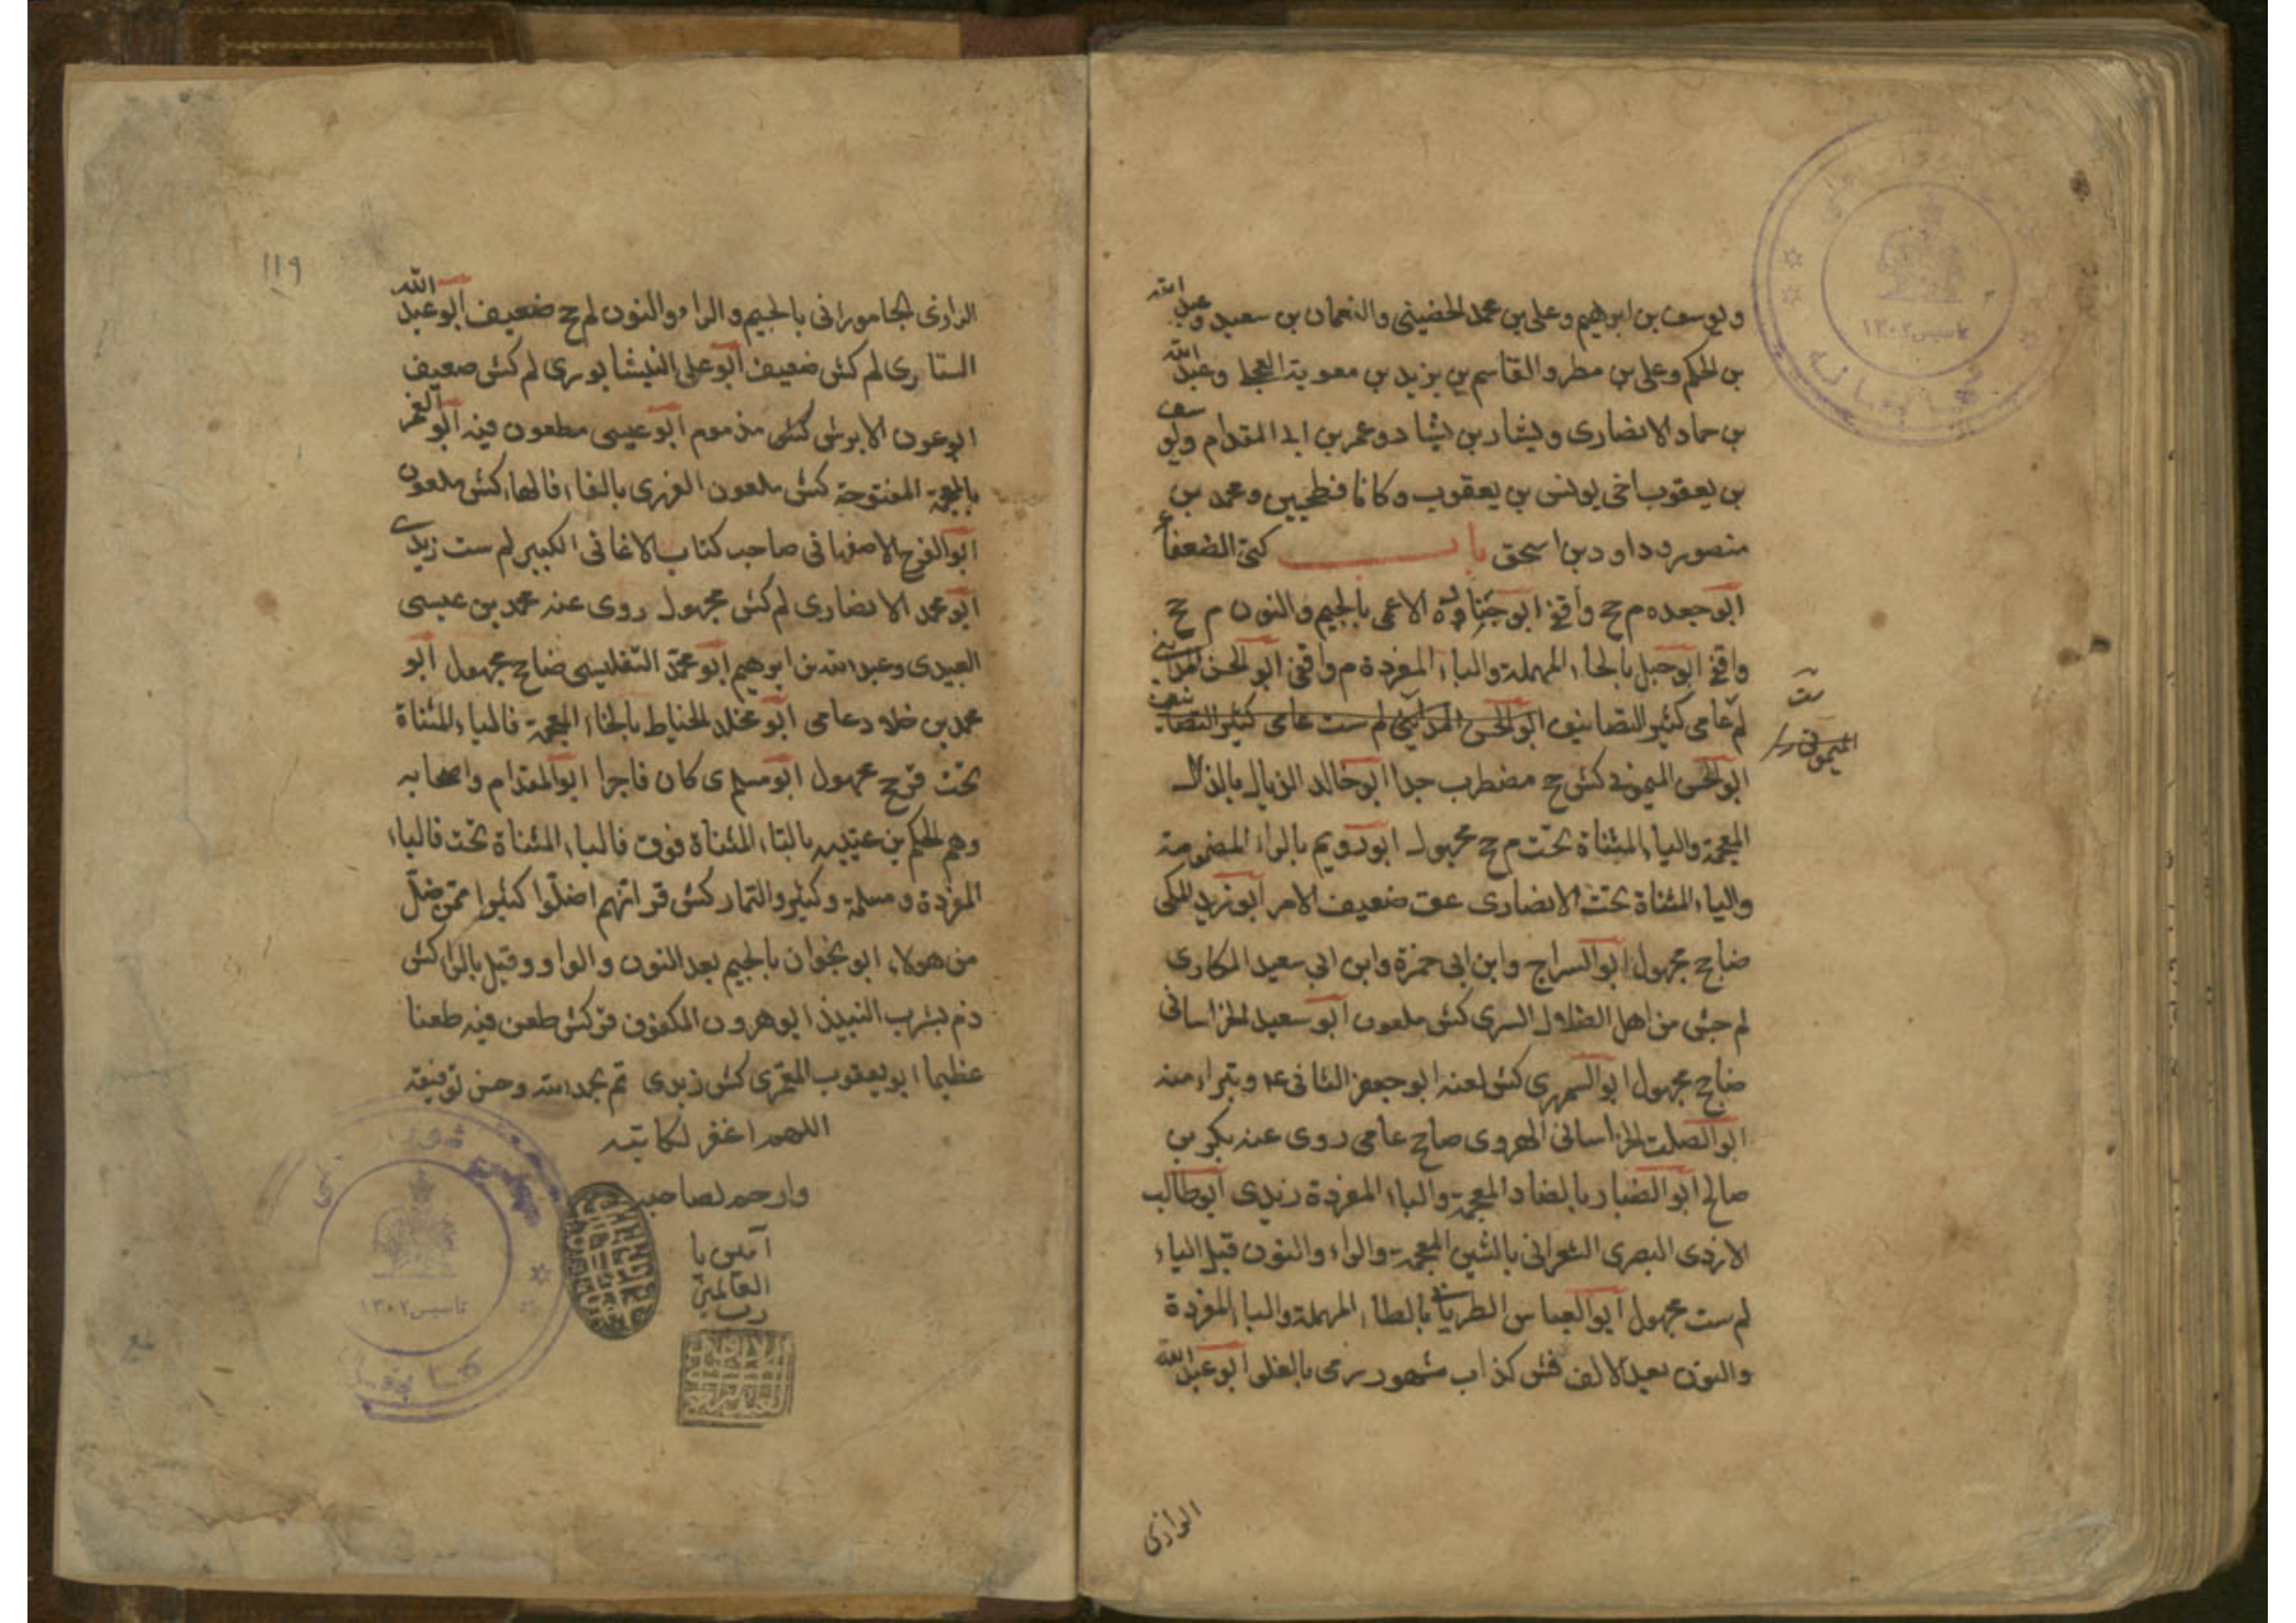 ويوسف بن ابرهيم وعلى بن محمد الحضينى والنعمان بن سعيد وعبد الله
بن الحكم وعلى بن مطر والقاسم بن بزيد بن معوية العجلى وعبد الله
بن حماد الانصارى وبشار بن بشار وعمر بن ابى المقدام ويوسف
بن يعقوب اخى يونس بن يعقوب وكانا فطحيين ومحمد بن
منصور وداود بن اسحق باب كنى الضعفاء
ابو جعده م جخ واقفى ابو جنادة الاعمى بالجيم والنون م جخ
واقفى ابو حبل بالحاء المهملة والباء المفردة م واقفى ابو الحسن المدائنى
لم عامى كثير التصانيف ابو الحسن المدائنى لم ست عامى كثير التصانيف
ست
الميمونى
ابو الحسن الميمونى كش جخ مضطرب جدا ابو خالد الذيال بالذال
المعجمة والياء المثناة تحت م جخ مجهول ابو رويم بالراء المضمومة
والياء المثناة تحت الانصارى عق ضعيف الامر ابو زيد المكى
ضا جخ مجهول ابو السراج وابن ابى حمزة وابن ابى سعيد المكارى
لم جش من اهل الضلال السرى كش ملعون ابو سعيد الخراسانى
ضا جخ مجهول ابو السمهرى كش لعنه ابو جعفر الثانى ع وتبراء منه
ابو الصلت الخراسانى الهروى ضا جخ عامى روى عنه بكر بن
صالح ابو الضبار بالضاد المعجمة والباء المفردة زيدى ابو طالب
الازدى البصرى الشعرانى بالشين المعجمة والراء والنون قبل الياء
لم ست مجهول ابو العباس الطرنانى بالطاء المهملة والباء المفردة
والنون بعد الالف كش كذاب مشهور يرمى بالغلو ابو عبد الله
الرازى
١١٩
الرازى الجامورانى بالجيم والراء والنون لم جخ ضعيف ابو عبد الله
السيارى لم كش ضعيف ابو على النيشابورى لم كش ضعيف
ابو عون الابرش كش مذموم ابو عيسى مطعون فيه ابو الغمر
بالمعجمة المفتوحة كش ملعون الفهرى بالفاء فالهاء كش ملعون
ابو الفرج الاصفهانى صاحب كتاب الاغانى الكبير لم ست زيدى
ابو محمد الانصارى لم كش مجهول روى عنه محمد بن عيسى
العبيدى وعبد الله بن ابرهيم ابو محمد التفليسى ضا جخ مجهول ابو
محمد بن خلاد عامى ابو مخلد الخياط بالخاء المعجمة فالياء المثناة
تحت ق جخ مجهول ابو مسلم ى كان فاجرا ابو المقدام واصحابه
وهم الحكم بن عتيبه بالتاء المثناة فوق فالياء المثناة تحت فالباء
المفردة وسلمة وكثير والتمار كش قر انهم اضلوا كثيرا ممن ضل
من هولاء ابو نجوان بالجيم بعد النون والواو وقيل بالراء كش
ذم بشرب النبيذ ابو هرون المكفوف قر كش طعن فيه طعنا
عظيما ابو يعقوب المقرى كش زيدى تم بحمد الله وحسن توفيقه
اللهم اغفر لكاتبه
وارحم لصاحبه
آمين يا
رب العالمين
تاسيس ١٣٠٢
كتابخانه
تاسيس ١٣٠٢
كتابخانه